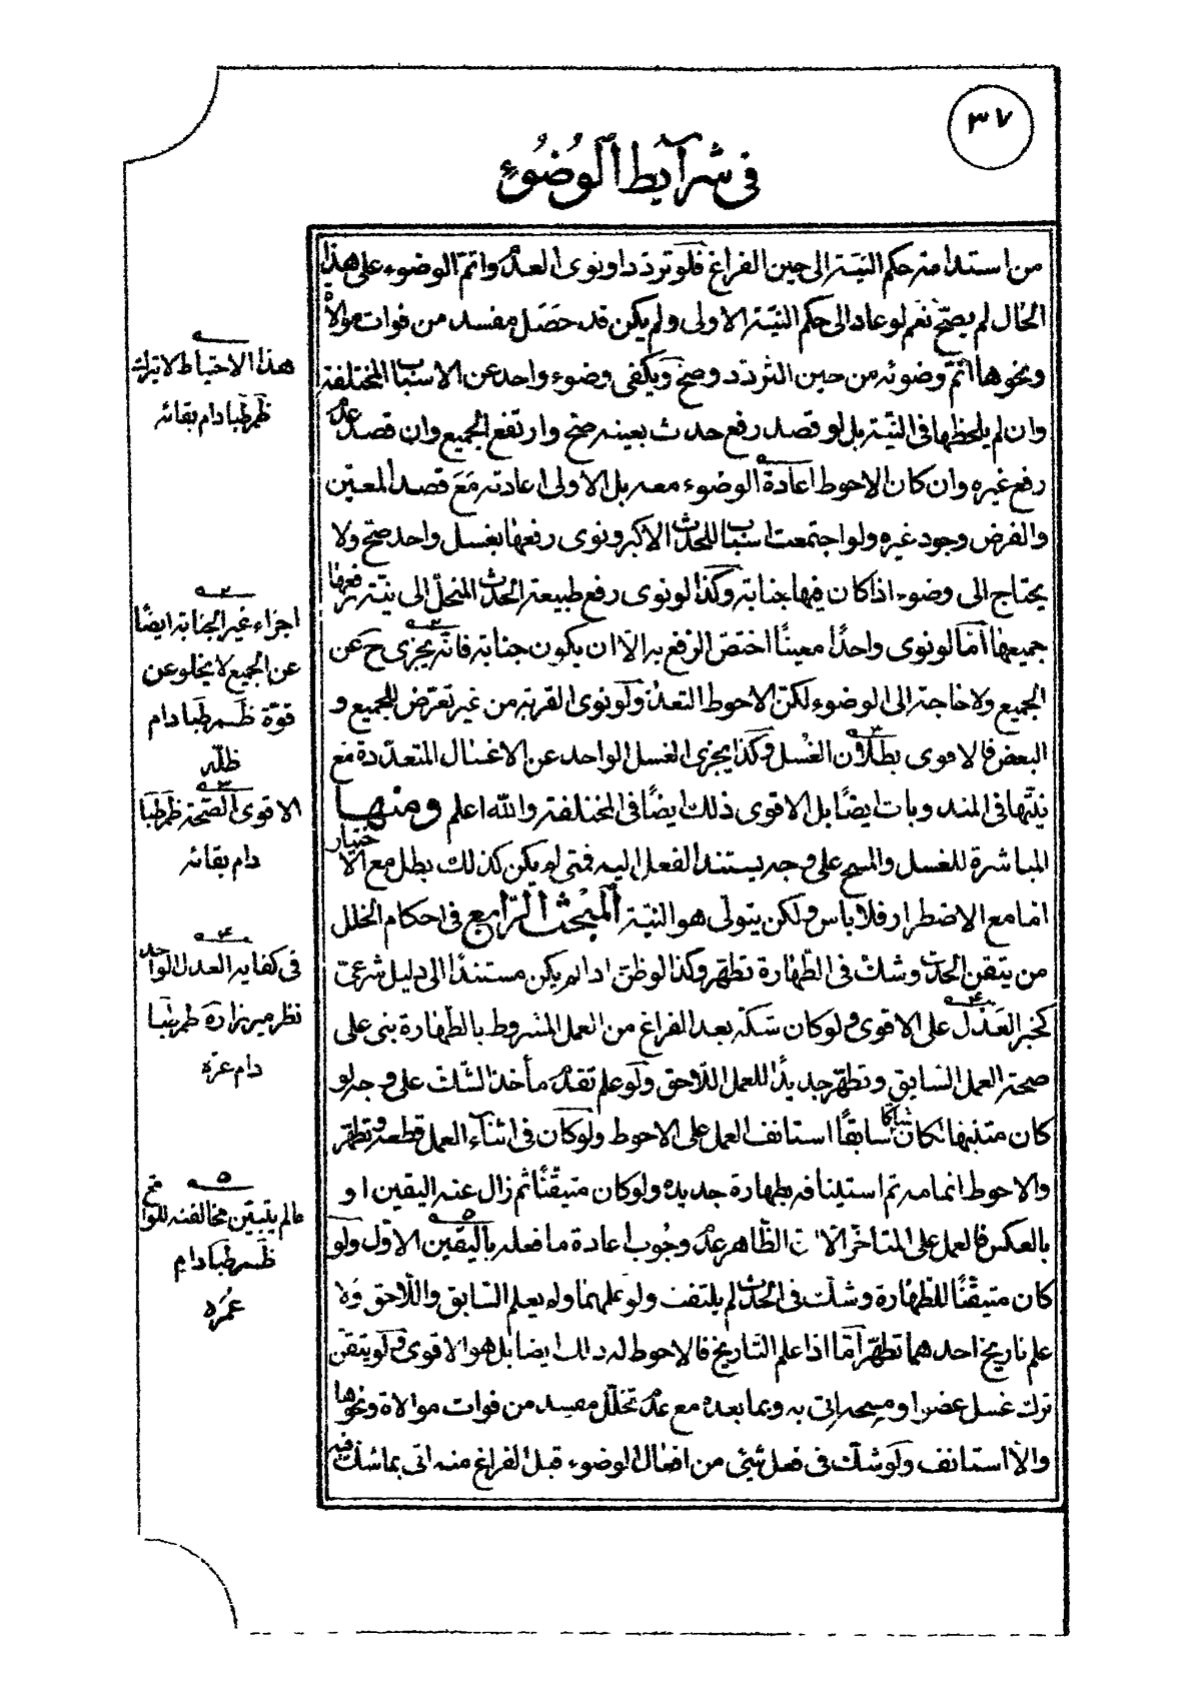 ٣٧
في شرايط الوضوء
من استدامة حكم النية الى حين الفراغ فلو تردد او نوى العدم واتم الوضوء على هذا
الحال لم يصح نعم لو عاد الى حكم النية الاولى ولم يكن قد حصل مفسد من فوات موالاة
ونحوها اتم وضوئه من حين التردد وصح ويكفى وضوء واحد عن الاسباب المختلفة
وان لم يلحظها في النية بل لو قصد رفع حدث بعينه صح وارتفع الجميع وان قصد عدم
رفع غيره وان كان الاحوط اعادة الوضوء معه بل الاولى اعادته مع قصد المعين
والفرض وجود غيره ولو اجتمعت اسباب للحدث الاكبر ونوى رفعها بغسل واحد صح ولا
يحتاج الى وضوء اذا كان فيها جنابة وكذا لو نوى رفع طبيعة الحدث المنحل الى نية رفعها
جميعها اما لو نوى واحدًا معينًا اختص الرفع به الا ان يكون جنابة فانه يجزى ح عن
الجميع ولا حاجة الى الوضوء لكن الاحوط التعدد ولو نوى القربة من غير تعرض للجميع و
البعض فالاقوى بطلان الغسل وكذا يجزى الغسل الواحد عن الاغسال المتعددة مع
نيتها في المندوبات ايضًا بل الاقوى ذلك ايضًا في المختلفة والله اعلم ومنها
المباشرة للغسل والمسح على وجه يستند الفعل اليه فمتى لم يكن كذلك بطل مع الاختيار
اما مع الاضطرار فلا باس ولكن يتولى هو النية المبحث الرابع في احكام الخلل
من يتقن الحدث وشك في الطهارة تطهر وكذا لو ظن اذا لم يكن مستندًا الى دليل شرعى
كخبر العدل على الاقوى ولو كان شكه بعد الفراغ من العمل المشروط بالطهارة بنى على
صحة العمل السابق وتطهر جديدًا للعمل اللاحق ولو علم تقدم مأخذ الشك على وجه لو
كان متنبها لكان شاكا سابقًا استانف العمل على الاحوط ولو كان في اثناء العمل قطعه وتطهر
والاحوط اتمامه ثم استينافه بطهارة جديده ولو كان متيقنًا ثم زال عنه اليقين او
بالعكس فالعمل على المتاخر الا ان الظاهر عدم وجوب اعادة ما فعله باليقين الاول ولو
كان متيقنًا للطهارة وشك في الحدث لم يلتفت ولو علمهما ولم يعلم السابق واللاحق ولا
علم تاريخ احدهما تطهر اما اذا علم التاريخ فالاحوط له ذلك ايضا بل هو الاقوى ولو يتقن
ترك غسل عضو او مسحه اتى به وبما بعده مع عدم تخلل مفسد من فوات موالاة ونحوها
والا استانف ولو شك في فعل شيئ من افعال الوضوء قبل الفراغ منه اتى بما شك فيه
هذا الاحتياط لا يترك
ظم طبا دام بقائه
٢
اجزاء غير الجنابة ايضًا
عن الجميع لا يخلو عن
قوة ظم طبا دام
ظله
٣
الاقوى الصحة ظم طبا
دام بقائه
٤
في كفاية العدل الواحد
نظر ميرزا ده ظم طبا
دام عزه
٥
ما لم يتبين مخالفته للواقع
ظم طبا دام
عمره